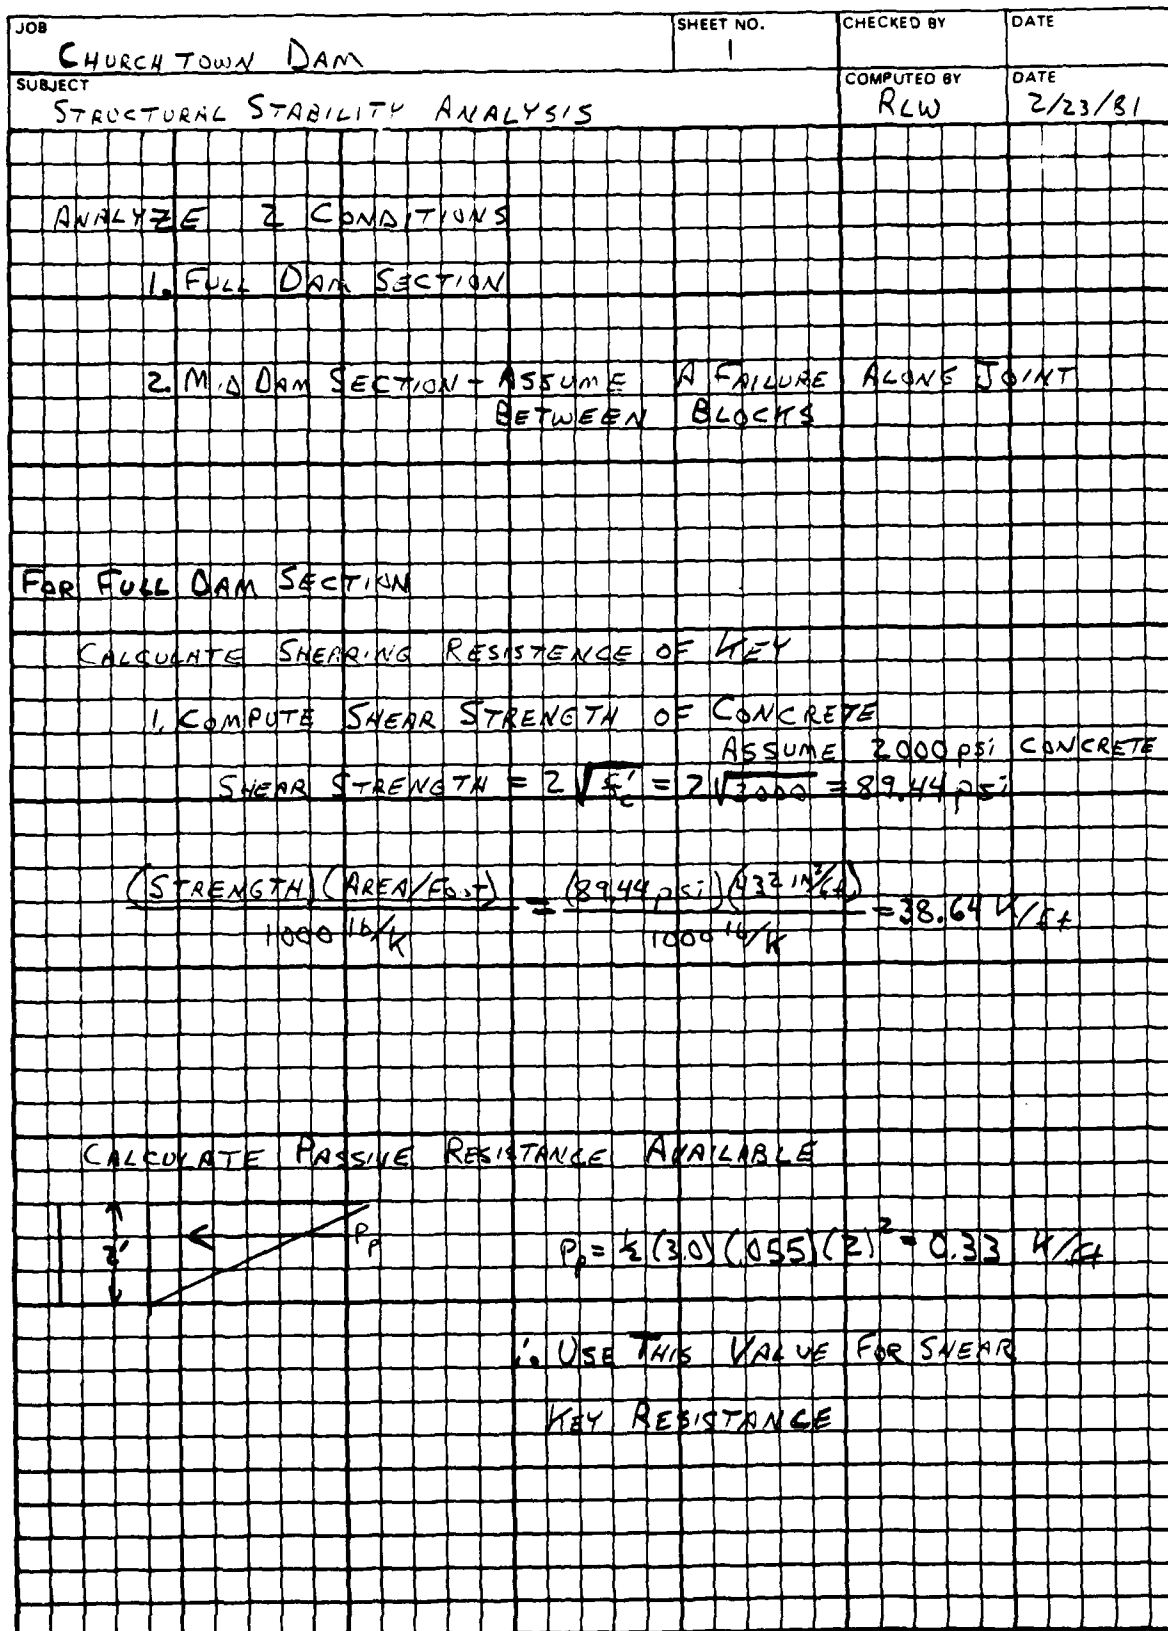 JOB SHEET NO. CHECKED BY DATE
CHURCHTOWN DAM 1
SUBJECT COMPUTED BY DATE
STRUCTURAL STABILITY ANALYSIS RLW 2/23/81
ANALYZE 2 CONDITIONS
1. FULL DAM SECTION
2. MID DAM SECTION - ASSUME A FAILURE ALONG JOINT
BETWEEN BLOCKS
FOR FULL DAM SECTION
CALCULATE SHEARING RESISTENCE OF KEY
1. COMPUTE SHEAR STRENGTH OF CONCRETE
ASSUME 2000 psi CONCRETE
SHEAR STRENGTH = 2 √f'c = 2 √2000 = 89.44 psi
(STRENGTH) (AREA/FOOT) / 1000 lb/K = (89.44 psi) (432 IN²/ft) / 1000 lb/K = 38.64 K/ft
CALCULATE PASSIVE RESISTANCE AVAILABLE
2' Pp Pp = ½ (3.0) (.055) (2)² = 0.33 K/ft
∴ USE THIS VALUE FOR SHEAR
KEY RESISTANCE